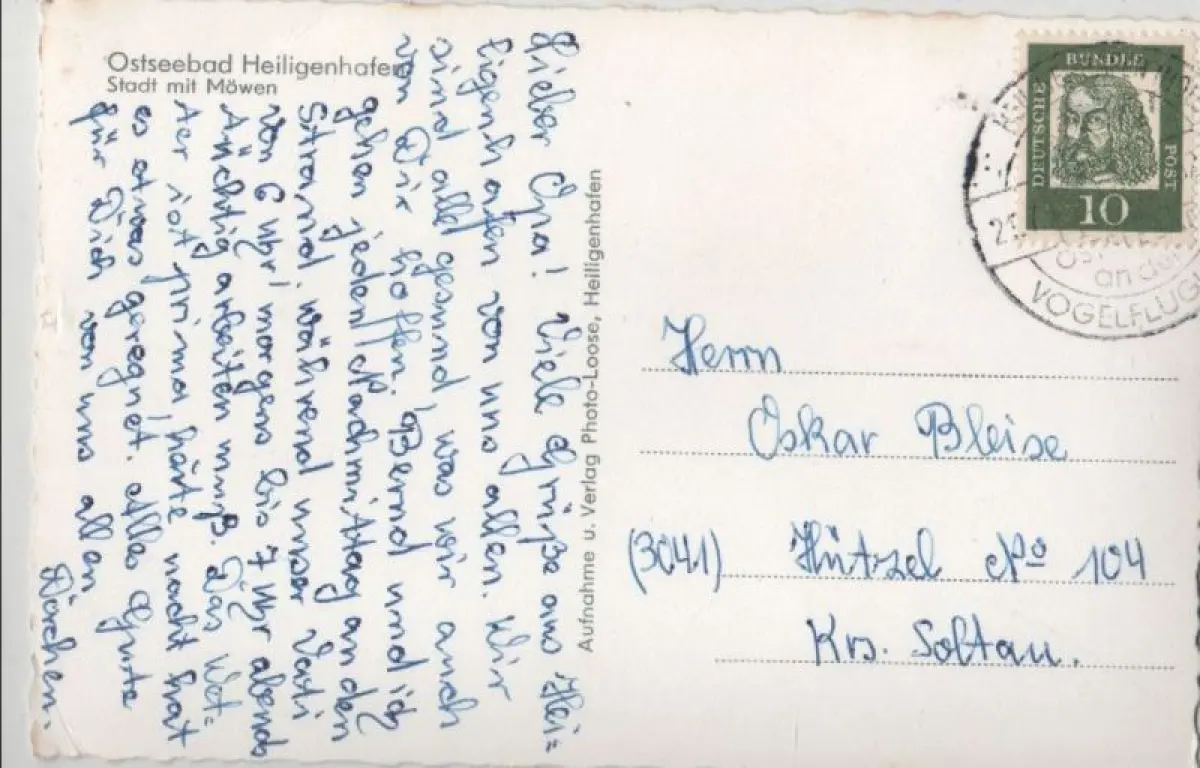 Ostseebad Heiligenhafen
Stadt mit Möwen
Lieber Opa! Viele Grüße aus Hei=
ligenhafen von uns allen. Wir
sind alle gesund, was wir auch
von Dir hoffen. Bernd und ich
gehen jeden Nachmittag an den
Strand, während unser Vati
von 6 Uhr morgens bis 7 Uhr abends
tüchtig arbeiten muß. Das Wet=
ter ist prima, heute nacht hat
es etwas geregnet. Alles Gute
für Dich von uns allen
Dörchen.
Aufnahme u. Verlag Photo-Loose, Heiligenhafen
DEUTSCHE
BUNDES
POST
10
21
an der
VOGELFLUG
Herrn
Oskar Bleise
(3041) Hützel No 104
Krs. Soltau.